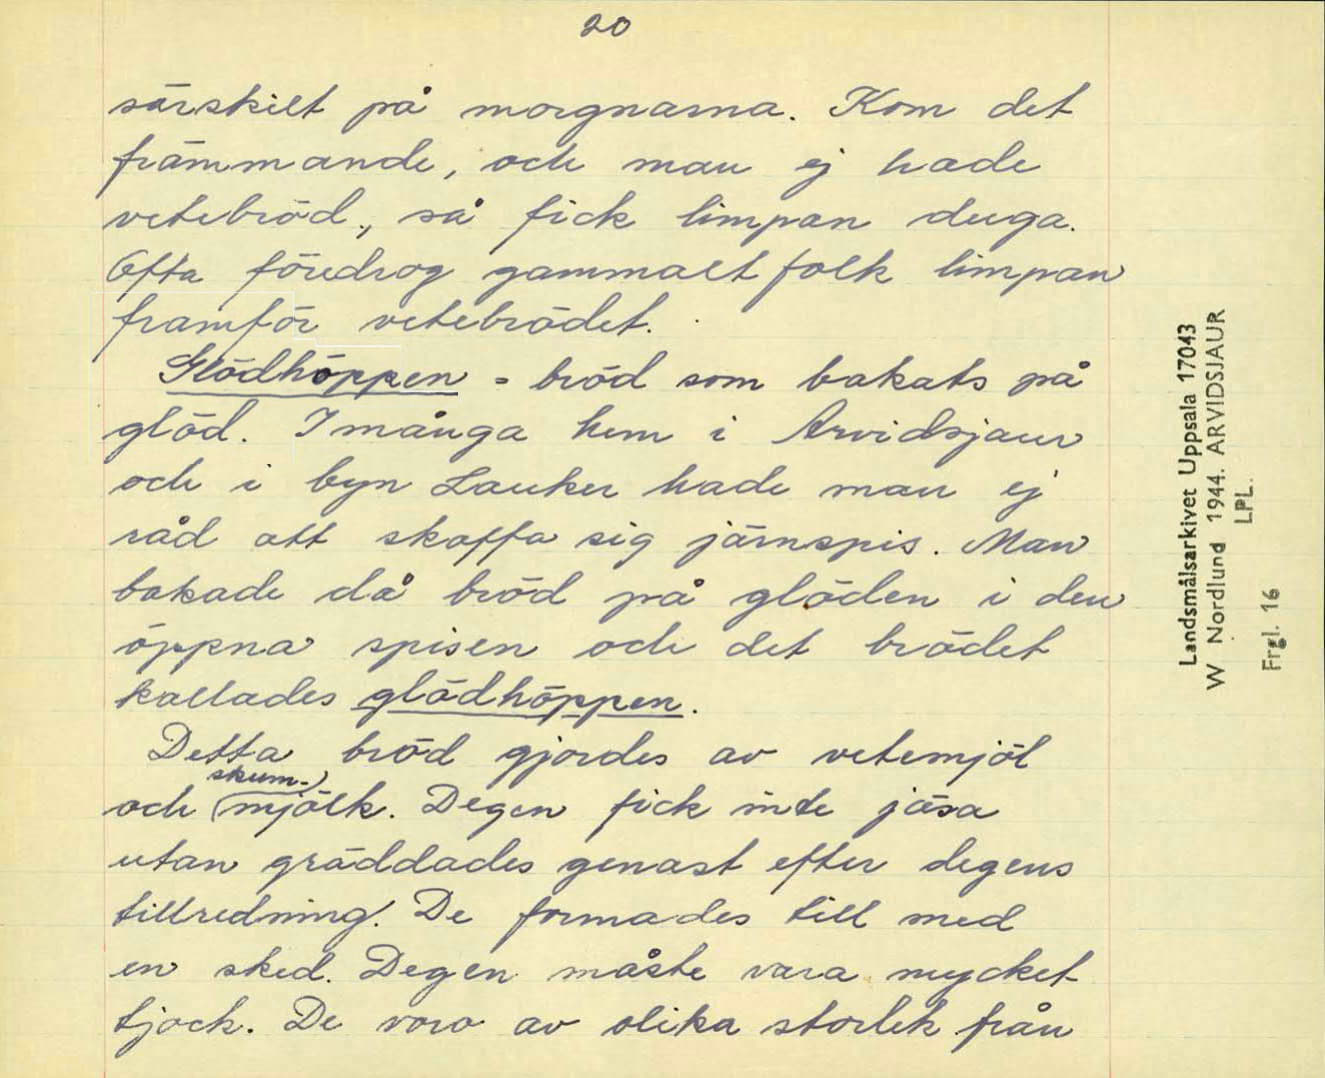 20
särskilt på morgnarna. Kom det
främmande, och man ej hade
vetebröd, så fick limpan duga.
Ofta föredrog gammalt folk limpan
framför vetebrödet.
Glödhöppen = bröd som bakats på
glöd. I många hem i Arvidsjaur
och i byn Lauker hade man ej
råd att skaffa sig järnspis. Man
bakade då bröd på glöden i den
öppna spisen och det brödet
kallades glödhöppen.
Detta bröd gjordes av vetemjöl
skum-
och mjölk. Degen fick inte jäsa
utan gräddades genast efter degens
tillredning. De formades till med
en sked. Degen måste vara mycket
tjock. De voro av olika storlek från
Landsmålsarkivet Uppsala 17043
W Nordlund 1944. ARVIDSJAUR
LPL.
Frgl. 16